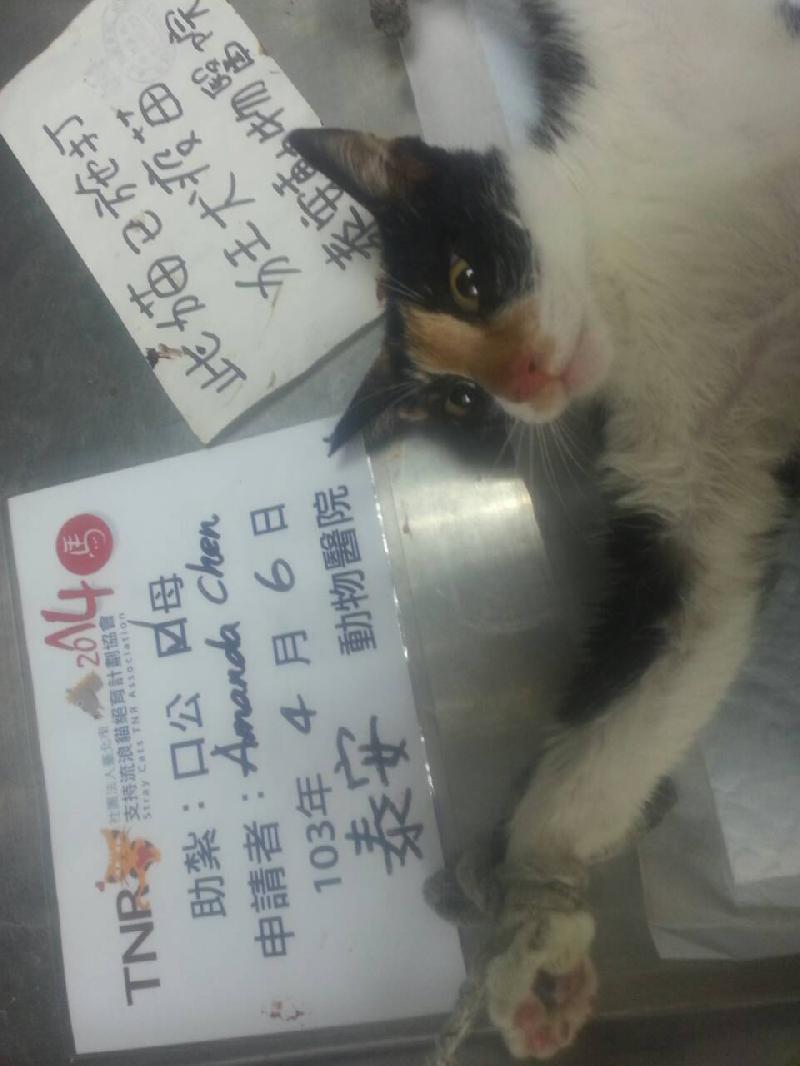 此貓已施打
狂犬疫苗
泰安動物醫院
TNR
社團法人臺北市
支持流浪貓絕育計劃協會
Stray Cats TNR Association
2014
馬
助紮：口公 口母
申請者：Amanda Chen
103年 4 月 6 日
泰安 動物醫院